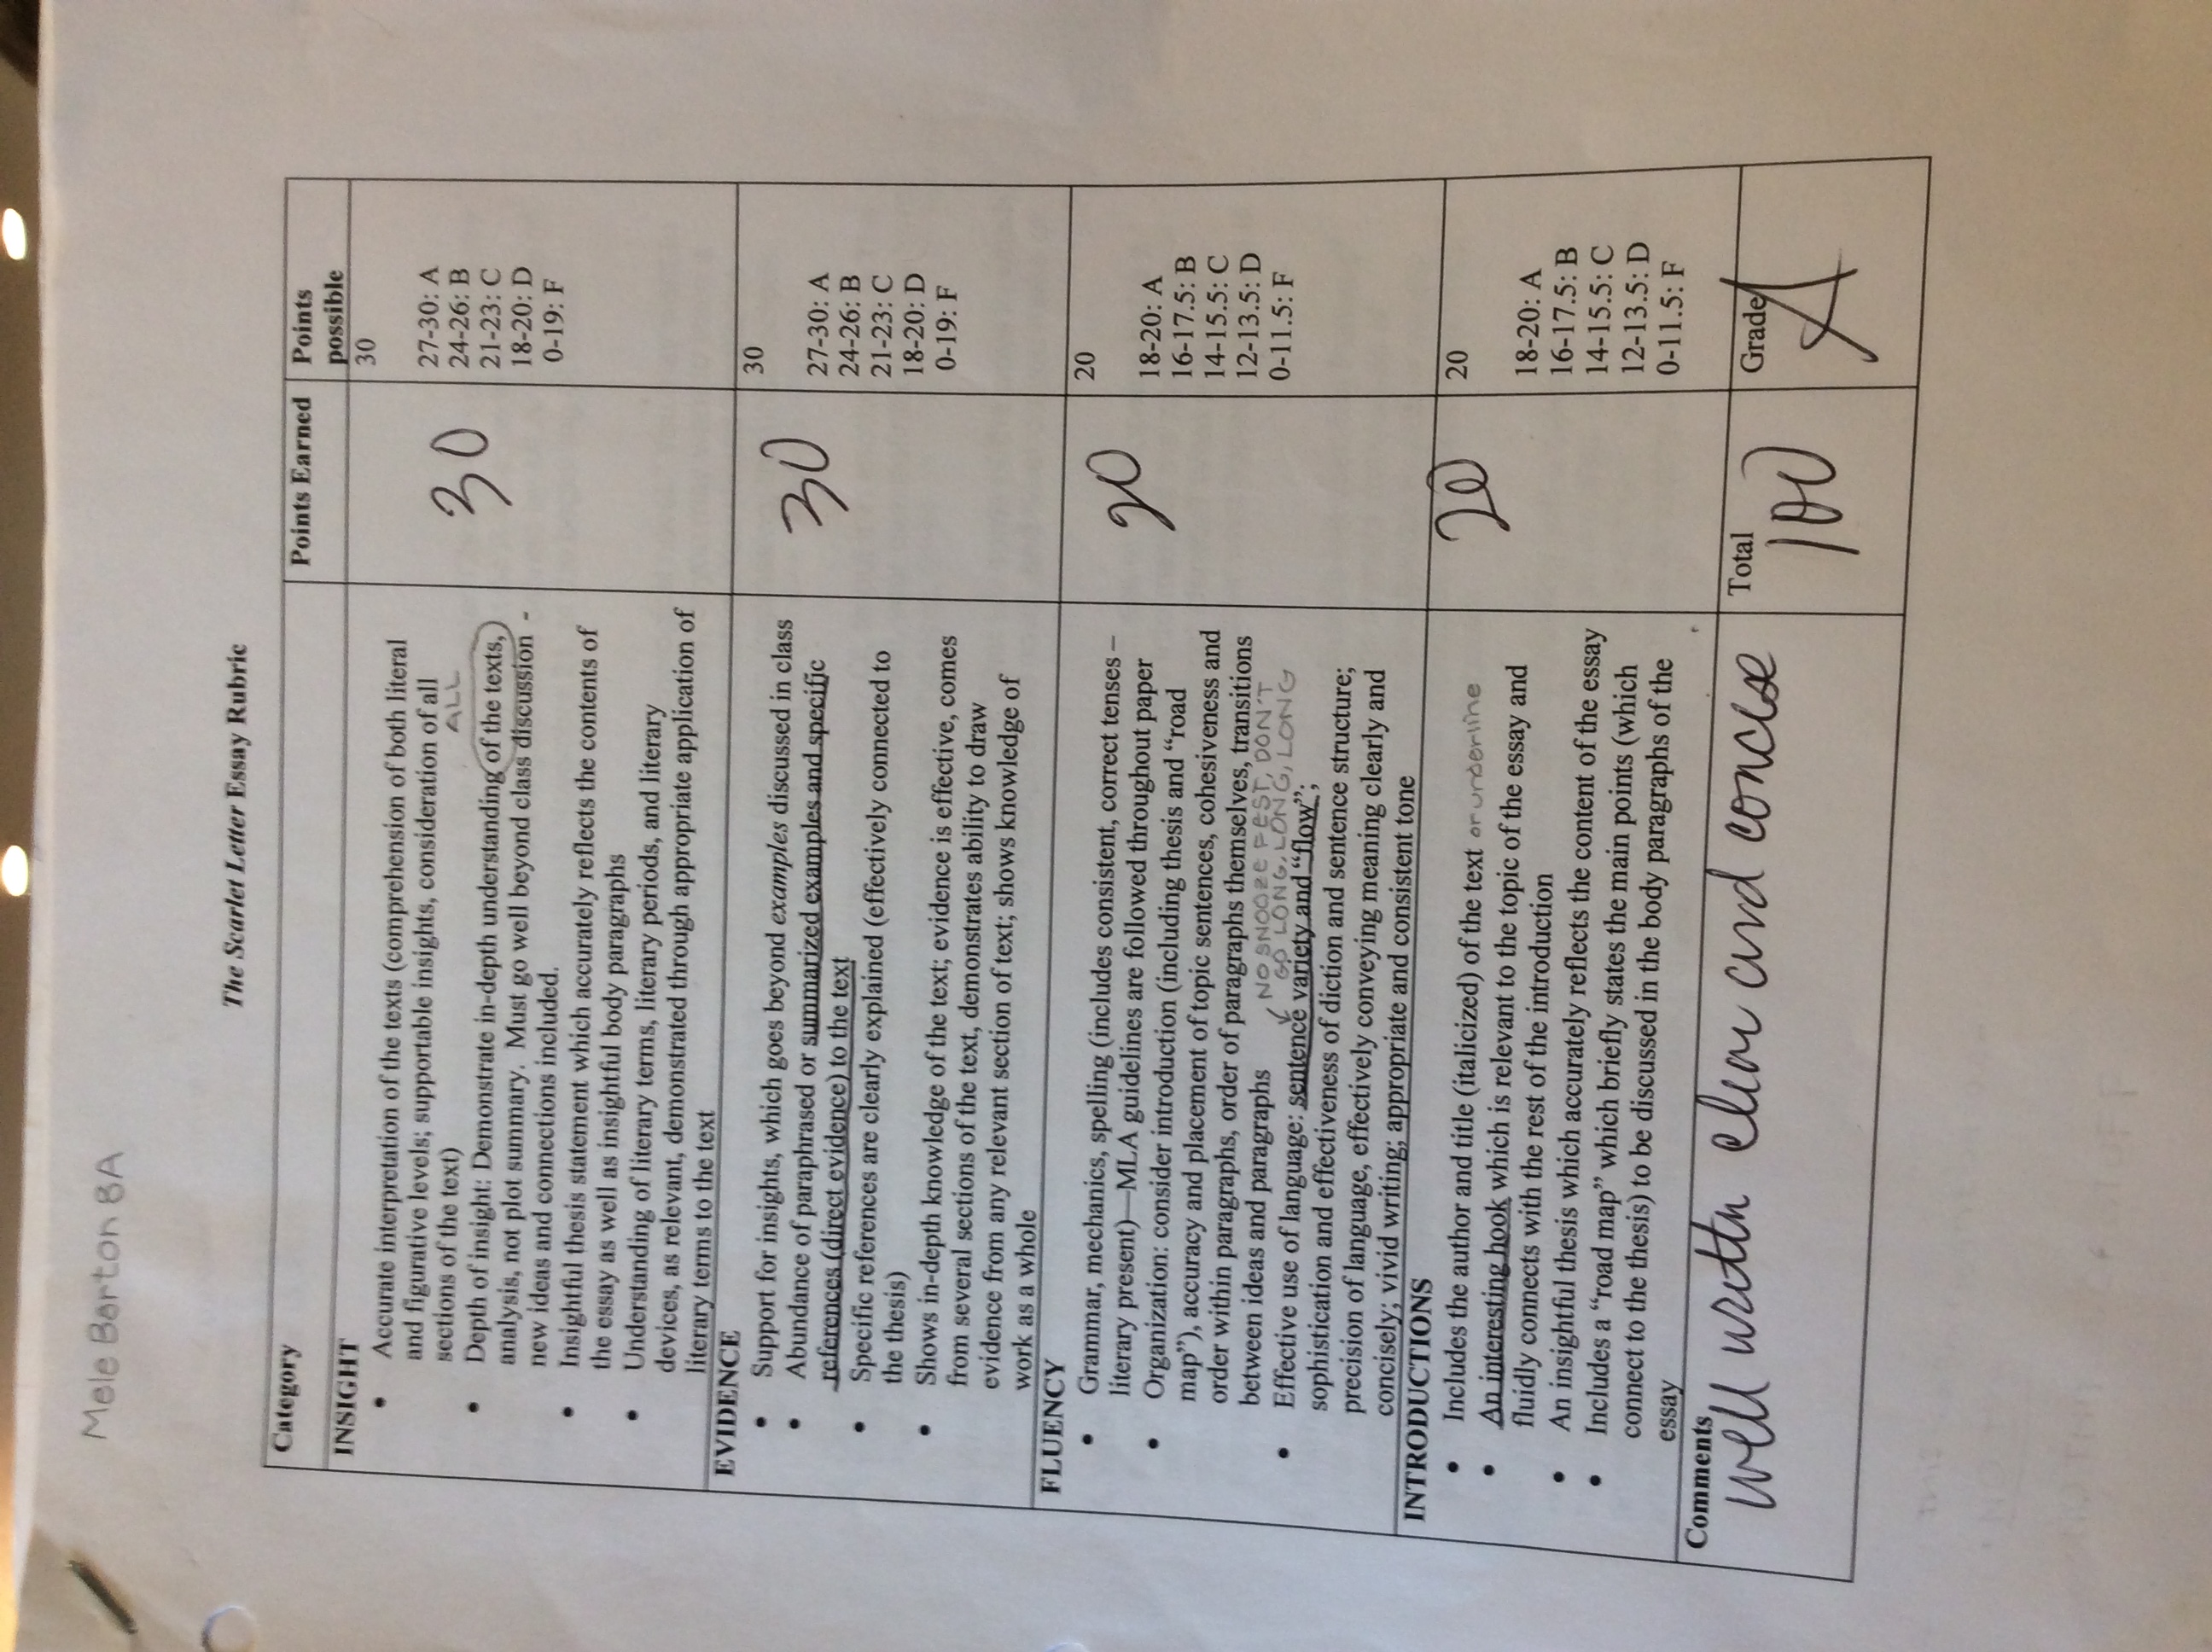 Mele Barton 8A
The Scarlet Letter Essay Rubric
Category
Points Earned
Points
possible
INSIGHT
• Accurate interpretation of the texts (comprehension of both literal
and figurative levels; supportable insights, consideration of all
sections of the text)
ALL
• Depth of insight: Demonstrate in-depth understanding of the texts,
analysis, not plot summary. Must go well beyond class discussion -
new ideas and connections included.
• Insightful thesis statement which accurately reflects the contents of
the essay as well as insightful body paragraphs
• Understanding of literary terms, literary periods, and literary
devices, as relevant, demonstrated through appropriate application of
literary terms to the text
30
30
27-30: A
24-26: B
21-23: C
18-20: D
0-19: F
EVIDENCE
• Support for insights, which goes beyond examples discussed in class
• Abundance of paraphrased or summarized examples and specific
references (direct evidence) to the text
• Specific references are clearly explained (effectively connected to
the thesis)
• Shows in-depth knowledge of the text; evidence is effective, comes
from several sections of the text, demonstrates ability to draw
evidence from any relevant section of text; shows knowledge of
work as a whole
30
30
27-30: A
24-26: B
21-23: C
18-20: D
0-19: F
FLUENCY
• Grammar, mechanics, spelling (includes consistent, correct tenses –
literary present)—MLA guidelines are followed throughout paper
• Organization: consider introduction (including thesis and “road
map”), accuracy and placement of topic sentences, cohesiveness and
order within paragraphs, order of paragraphs themselves, transitions
between ideas and paragraphs
NO SNOOZE FEST, DON'T
GO LONG, LONG, LONG
• Effective use of language: sentence variety and “flow”;
sophistication and effectiveness of diction and sentence structure;
precision of language, effectively conveying meaning clearly and
concisely; vivid writing; appropriate and consistent tone
20
20
18-20: A
16-17.5: B
14-15.5: C
12-13.5: D
0-11.5: F
INTRODUCTIONS
• Includes the author and title (italicized) of the text or underline
• An interesting hook which is relevant to the topic of the essay and
fluidly connects with the rest of the introduction
• An insightful thesis which accurately reflects the content of the essay
• Includes a “road map” which briefly states the main points (which
connect to the thesis) to be discussed in the body paragraphs of the
essay
20
20
18-20: A
16-17.5: B
14-15.5: C
12-13.5: D
0-11.5: F
Comments
well written clear and concise
Total
100
Grade
A